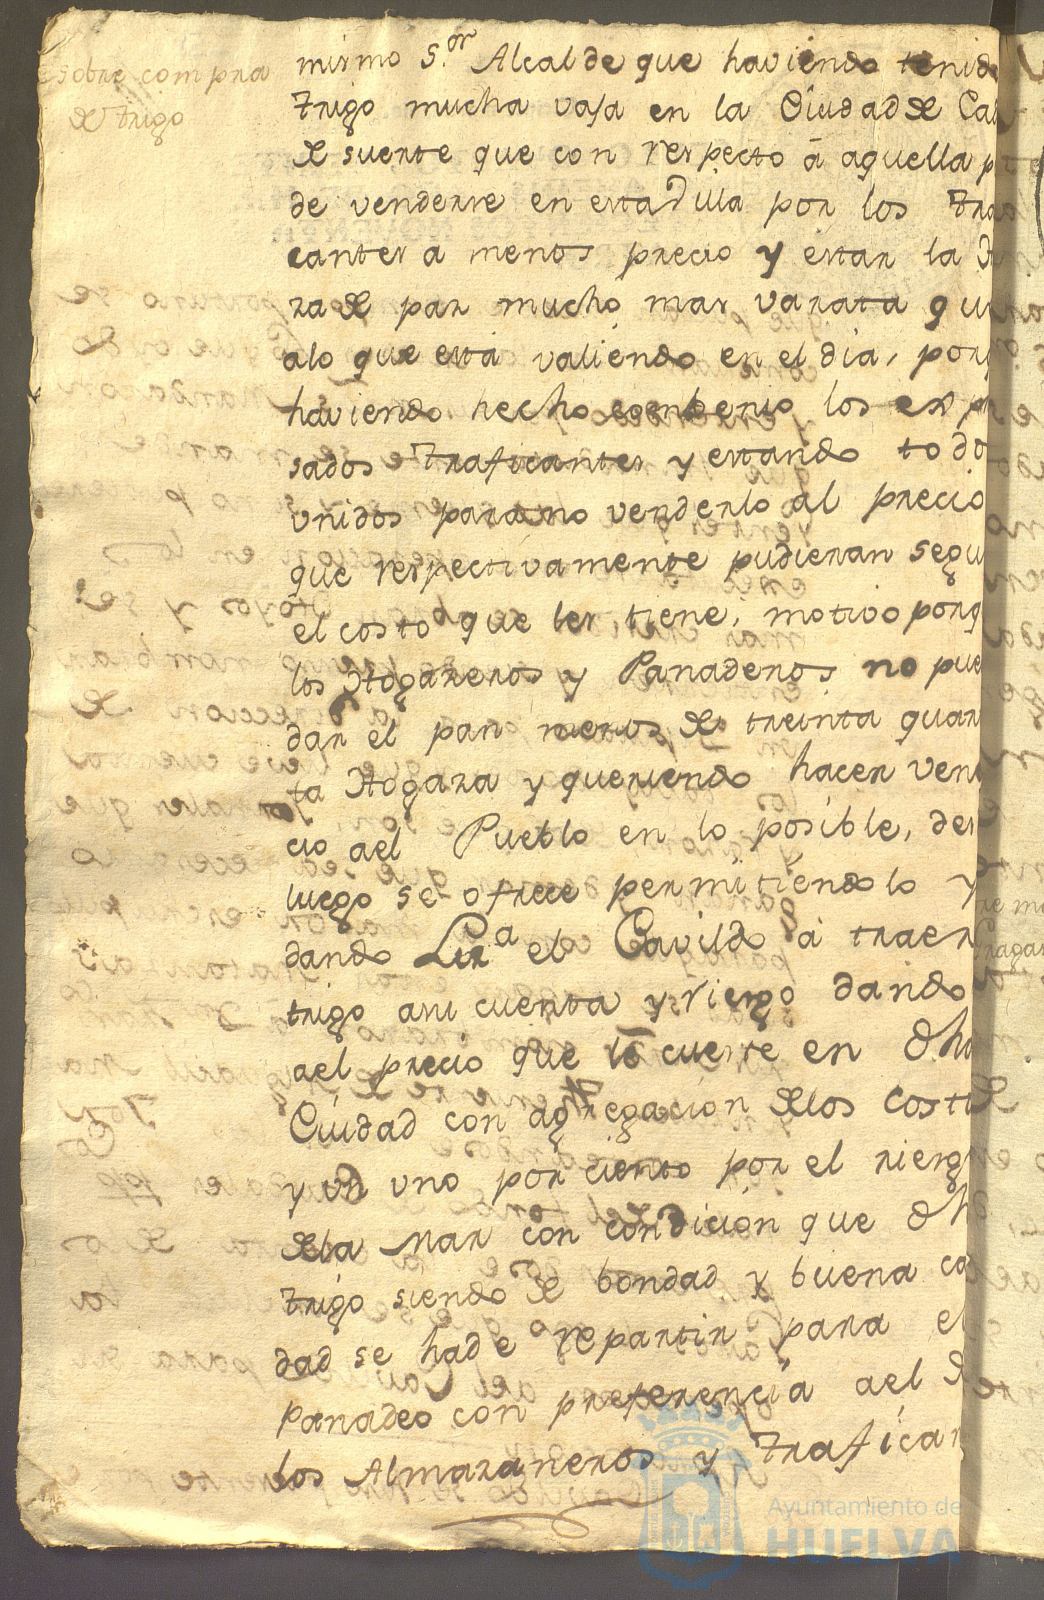 sobre compra
de trigo
mismo S.or Alcalde que haviendo tenid
trigo mucha vaja en la Ciudad de Cad
de suerte que con respecto á aquella p
de venderse en esta Villa por los tra
cantes a menos precio y estar la
za de pan mucho mas varata qu
alo que está valiendo en el dia, por
haviendo hecho combenio los exp
sados traficantes y estando todo
vnidos para no venderlo al precio
que respectivamente pudieran segu
el costo que les tiene, motivo porq
los Hogazeros y Panaderos no pue
dar el pan menos de treinta quar
ta Hogaza y queriendo hacer vene
cio ael Pueblo en lo posible, des
luego se ofrece permitiendolo y
dando Liz.a el Cavildo á traer
trigo asu cuenta y riesgo dando
ael precio que le cueste en dha
Ciudad con agregacion delos costo
y un uno por ciento por el riesg
dela Mar con condicion que dho
trigo siendo de bondad y buena ca
dad se hade repartir para el
Panadeo con preferencia ael d
los Almazaneros y trafican
Ayuntamiento de
HUELVA